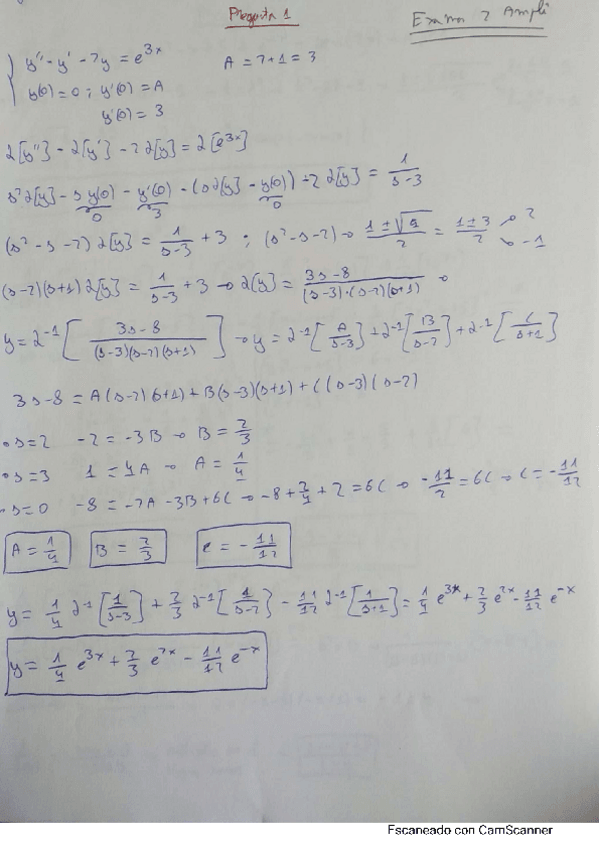 Pregunta 1
Examen 2 Ampli
y'' - y' - 2y = e^{3x}    A = 2+1 = 3
y(0) = 0 ; y'(0) = A
y'(0) = 3
ℒ[y''] - ℒ[y'] - 2ℒ[y] = ℒ[e^{3x}]
s²ℒ[y] - s y(0) - y'(0) - (sℒ[y] - y(0)) - 2ℒ[y] = 1/(s-3)
0    3    0
(s² - s - 2) ℒ[y] = 1/(s-3) + 3 ; (s² - s - 2) → (1±√9)/2 = (1±3)/2 → 2 → -1
(s-2)(s+1) ℒ[y] = 1/(s-3) + 3 → ℒ[y] = (3s-8)/((s-3)·(s-2)(s+1)) →
y = ℒ⁻¹[(3s-8)/((s-3)(s-2)(s+1))] → y = ℒ⁻¹[A/(s-3)] + ℒ⁻¹[B/(s-2)] + ℒ⁻¹[C/(s+1)]
3s-8 = A(s-2)(s+1) + B(s-3)(s+1) + C(s-3)(s-2)
• s=2    -2 = -3B → B = 2/3
• s=3    1 = 4A → A = 1/4
• s=0    -8 = -2A - 3B + 6C → -8 + 2/4 + 2 = 6C → -11/2 = 6C → C = -11/12
A = 1/4    B = 2/3    C = -11/12
y = 1/4 ℒ⁻¹[1/(s-3)] + 2/3 ℒ⁻¹[1/(s-2)] - 11/12 ℒ⁻¹[1/(s+1)] = 1/4 e^{3x} + 2/3 e^{2x} - 11/12 e^{-x}
y = 1/4 e^{3x} + 2/3 e^{2x} - 11/12 e^{-x}
Escaneado con CamScanner